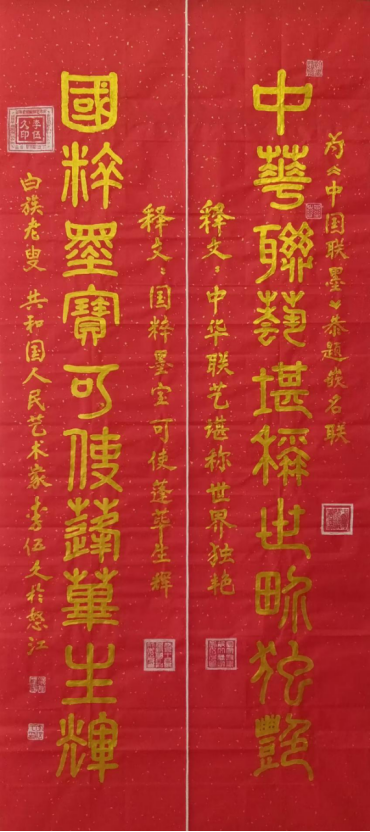 为《中国联墨》恭题嵌名联
中華聯藝堪稱世畍独豔
释文：中华联艺堪称世界独艳
释文：国粹墨宝可使蓬荜生辉
國粹墨寶可使蓬蓽生輝
白族老叟 共和国人民艺术家李伍久於怒江
李伍久印